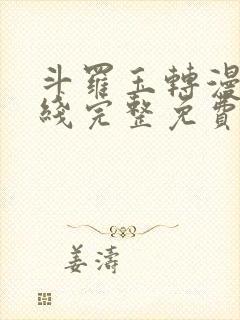 斗羅玉轉漫
綫完整免費
姜濤